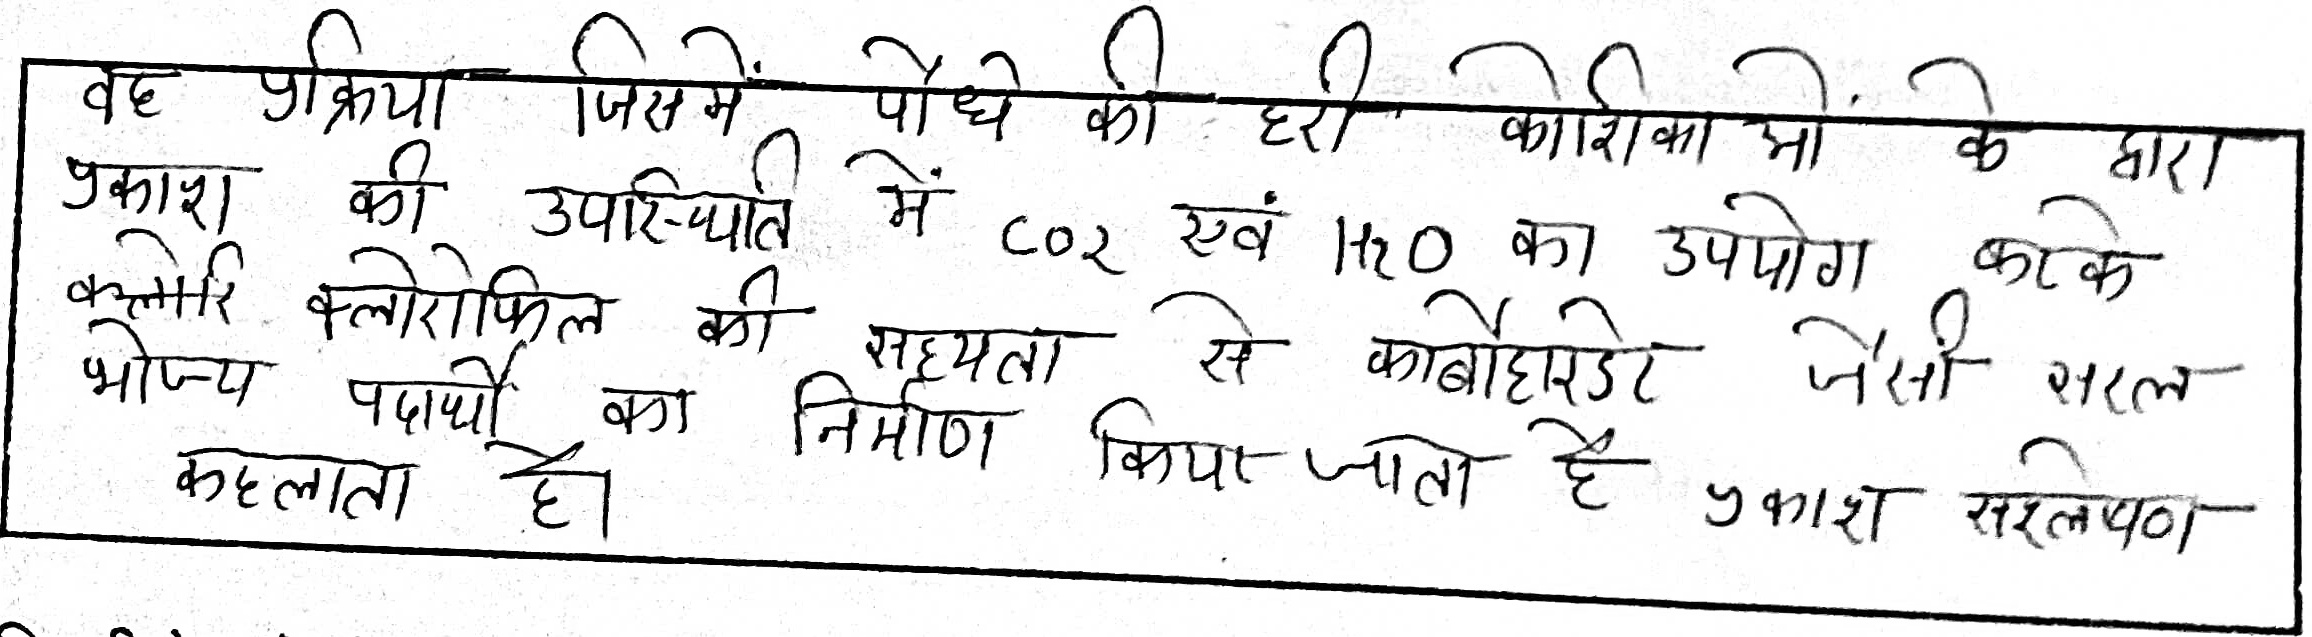 वह प्रक्रिया जिसमें पौधे की हरी कोशिकाओं के द्वारा
प्रकाश की उपस्थिति में CO2 एवं H2O का उपयोग करके
क्लोरोफिल की सहयता से कार्बोहाइडेट जैसी सरल
भोज्य पदार्थो का निर्माण किया जाता है प्रकाश सश्लेषण
कहलाता है।